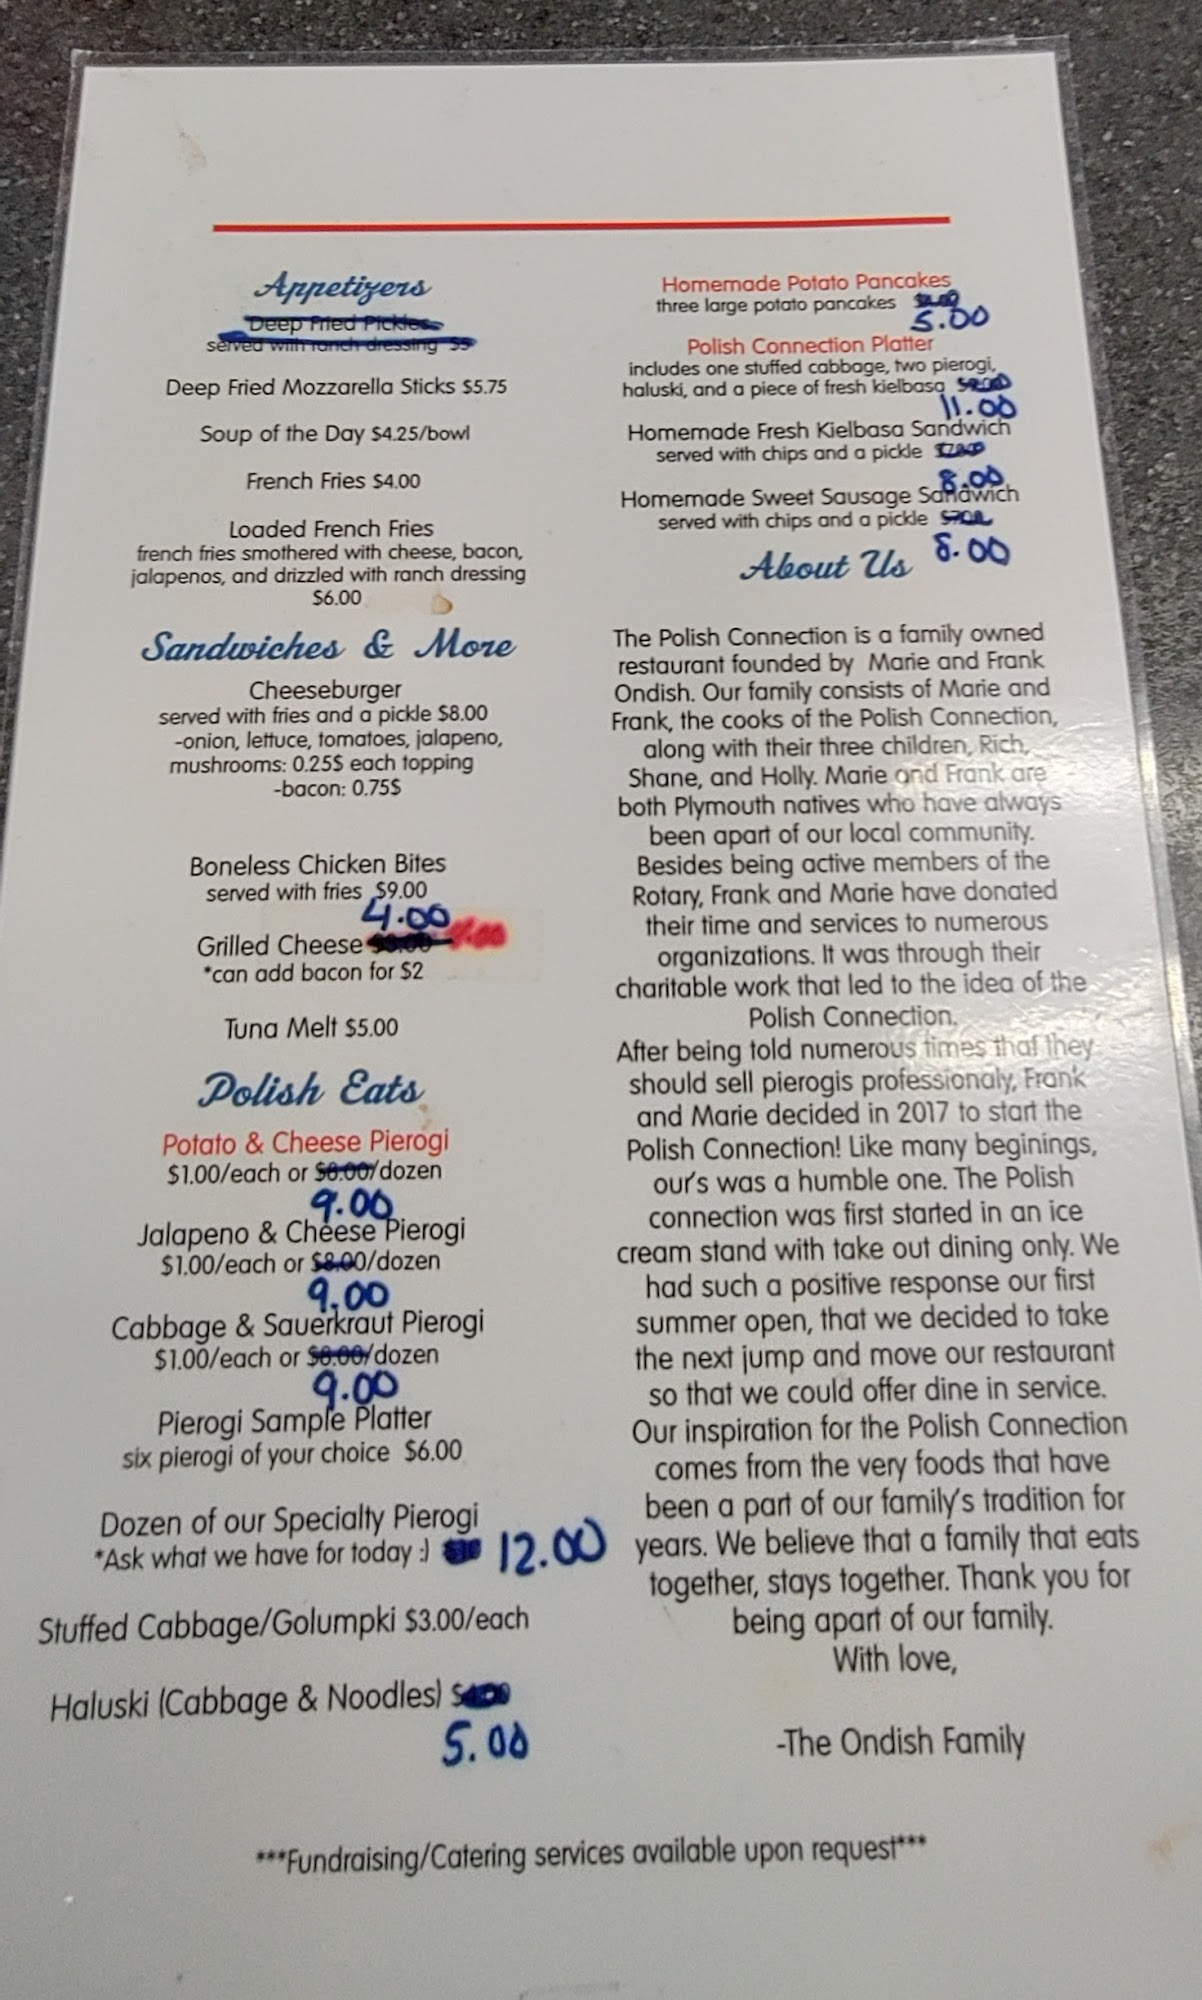 Appetizers
Deep Fried Pickles
served with ranch dressing $5
Deep Fried Mozzarella Sticks $5.75
Soup of the Day $4.25/bowl
French Fries $4.00
Loaded French Fries
french fries smothered with cheese, bacon,
jalapenos, and drizzled with ranch dressing
$6.00
Sandwiches & More
Cheeseburger
served with fries and a pickle $8.00
-onion, lettuce, tomatoes, jalapeno,
mushrooms: 0.25$ each topping
-bacon: 0.75$
Boneless Chicken Bites
served with fries $9.00
4.00
Grilled Cheese
*can add bacon for $2
Tuna Melt $5.00
Polish Eats
Potato & Cheese Pierogi
$1.00/each or $8.00/dozen
9.00
Jalapeno & Cheese Pierogi
$1.00/each or $8.00/dozen
9.00
Cabbage & Sauerkraut Pierogi
$1.00/each or $8.00/dozen
9.00
Pierogi Sample Platter
six pierogi of your choice $6.00
Dozen of our Specialty Pierogi
*Ask what we have for today :) 12.00
Stuffed Cabbage/Golumpki $3.00/each
Haluski (Cabbage & Noodles)
5.00
Homemade Potato Pancakes
three large potato pancakes
5.00
Polish Connection Platter
includes one stuffed cabbage, two pierogi,
haluski, and a piece of fresh kielbasa
11.00
Homemade Fresh Kielbasa Sandwich
served with chips and a pickle
8.00
Homemade Sweet Sausage Sandwich
served with chips and a pickle
8.00
About Us
The Polish Connection is a family owned
restaurant founded by Marie and Frank
Ondish. Our family consists of Marie and
Frank, the cooks of the Polish Connection,
along with their three children, Rich,
Shane, and Holly. Marie and Frank are
both Plymouth natives who have always
been apart of our local community.
Besides being active members of the
Rotary, Frank and Marie have donated
their time and services to numerous
organizations. It was through their
charitable work that led to the idea of the
Polish Connection.
After being told numerous times that they
should sell pierogis professionaly, Frank
and Marie decided in 2017 to start the
Polish Connection! Like many beginings,
our's was a humble one. The Polish
connection was first started in an ice
cream stand with take out dining only. We
had such a positive response our first
summer open, that we decided to take
the next jump and move our restaurant
so that we could offer dine in service.
Our inspiration for the Polish Connection
comes from the very foods that have
been a part of our family's tradition for
years. We believe that a family that eats
together, stays together. Thank you for
being apart of our family.
With love,
-The Ondish Family
***Fundraising/Catering services available upon request***